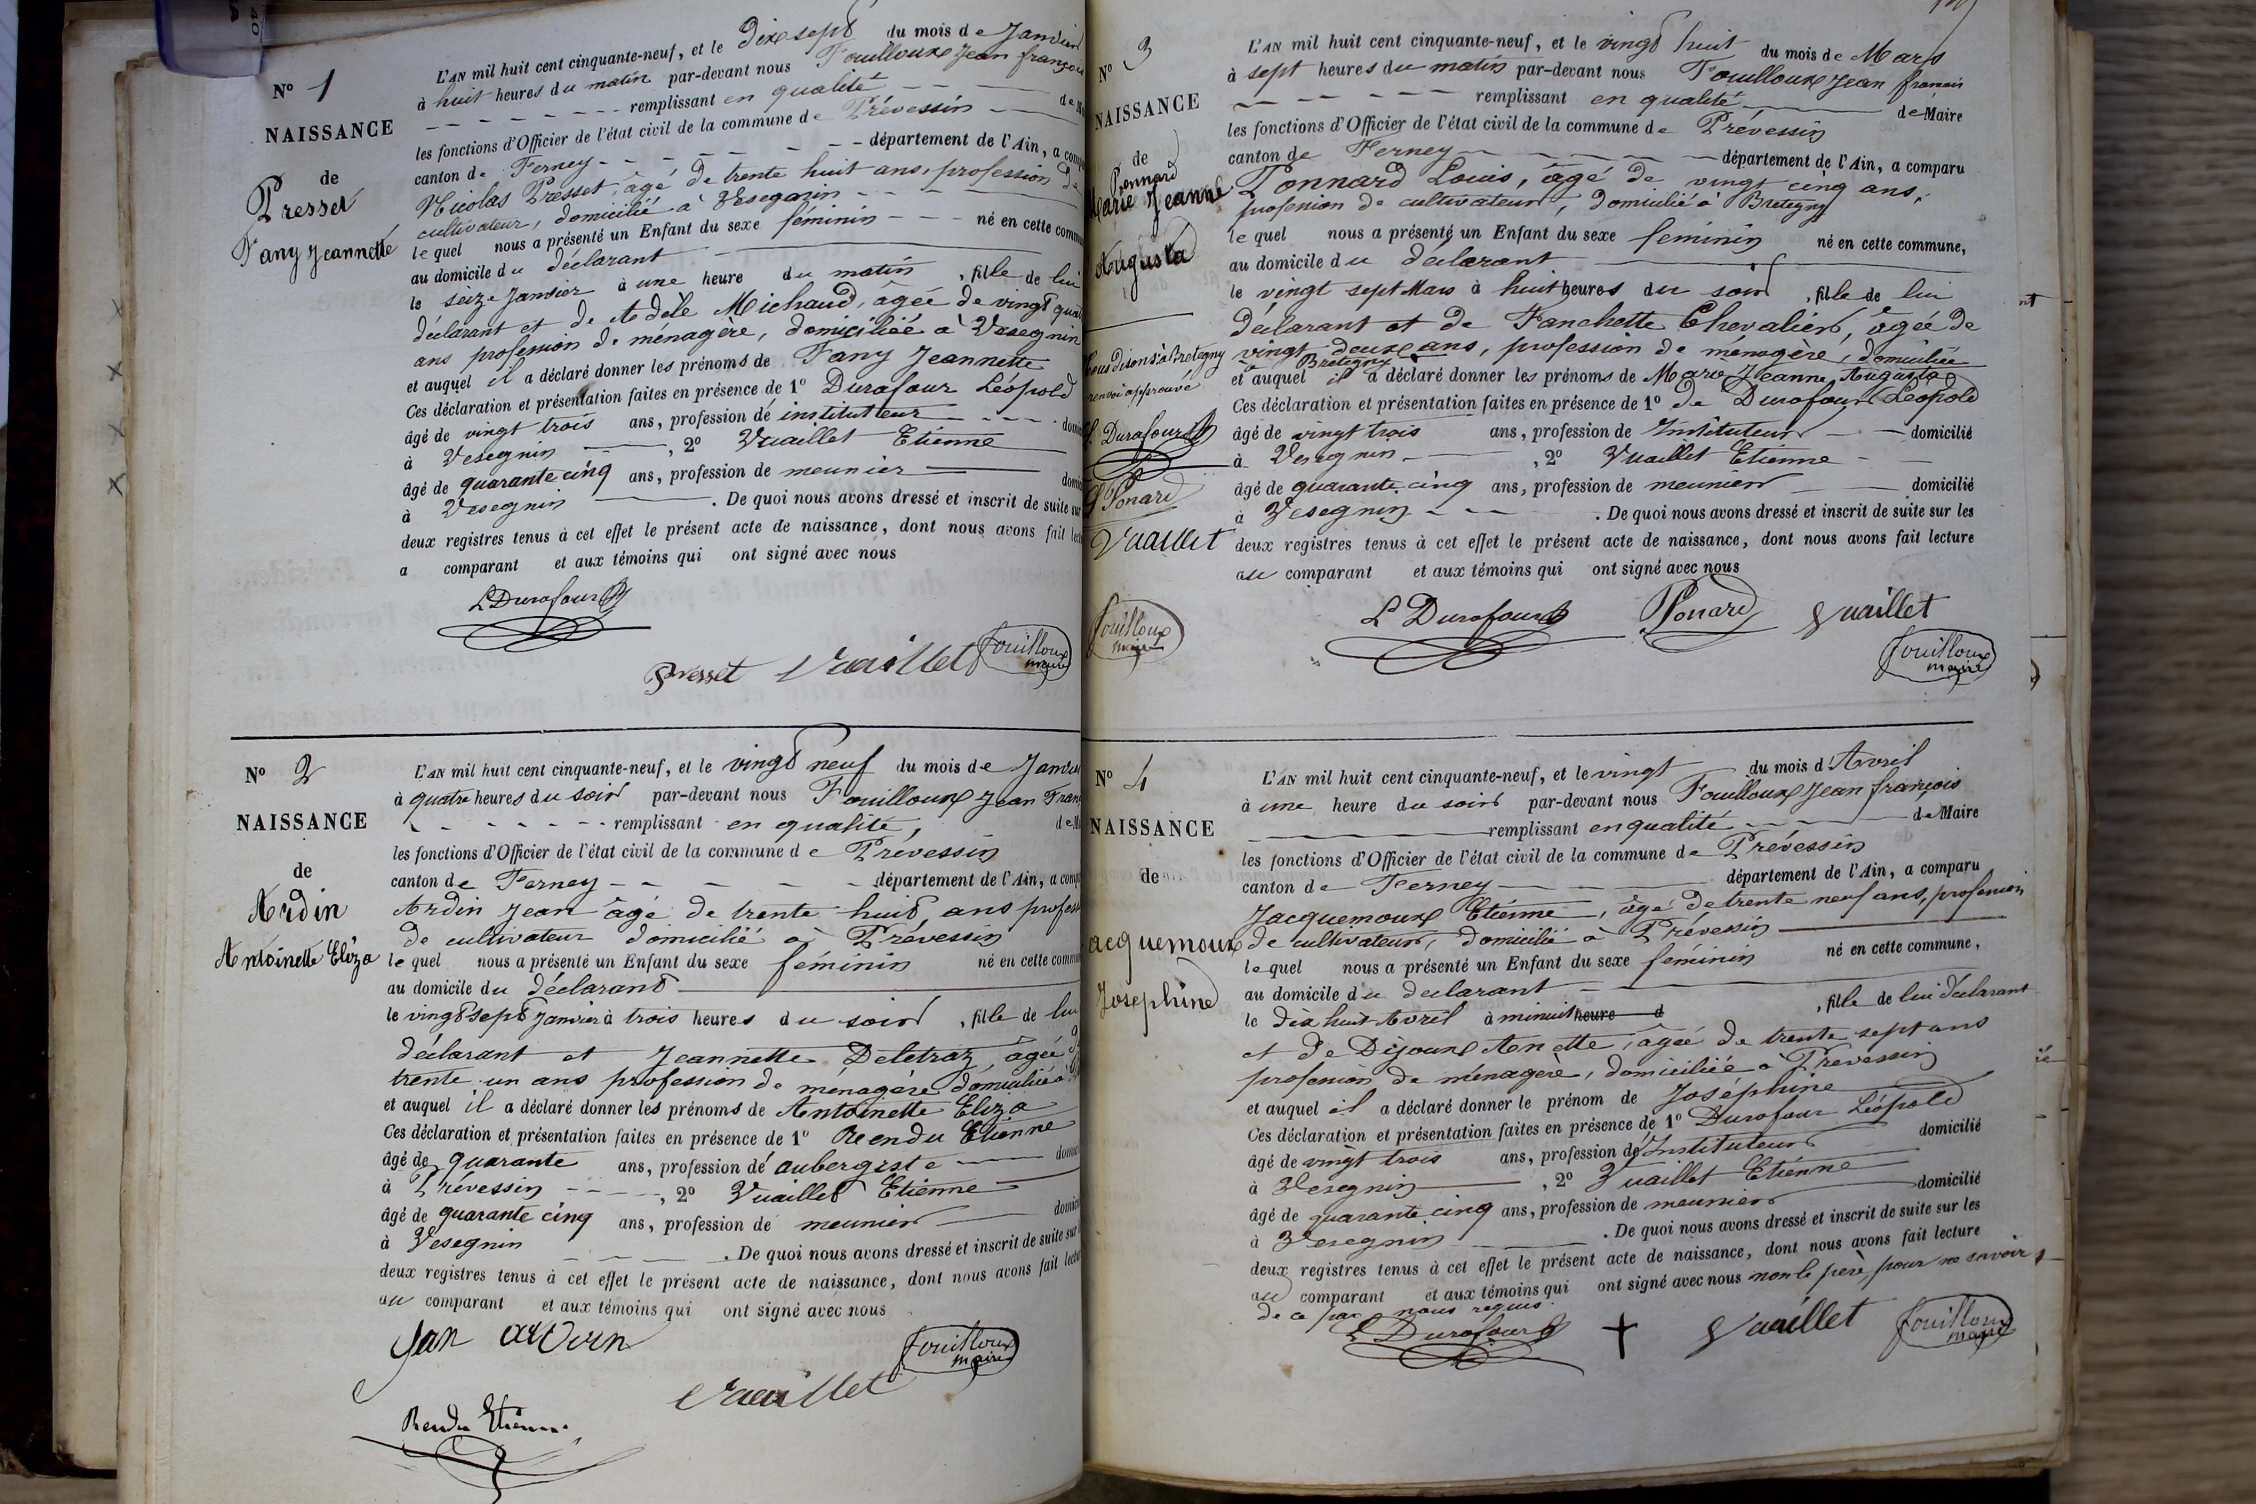 N° 1
NAISSANCE
de
Presset
Fany Jeannette
L'AN mil huit cent cinquante-neuf, et le dix sept du mois de Janvier
à huit heures du matin par-devant nous Fouilloux Jean françois
remplissant en qualité de
les fonctions d'Officier de l'état civil de la commune de Prévessin
canton de Ferney département de l'Ain, a
Nicolas Presset, âgé de trente huit ans, profession de
cultivateur, domicilié à Vesegnin
lequel nous a présenté un Enfant du sexe féminin né en cette
au domicile du déclarant
le seize Janvier à une heure du matin, fille de lui
déclarant et de Adèle Michaud, âgée de vingt
ans profession de ménagère, domiciliée à Vesegnin
et auquel il a déclaré donner les prénoms de Fany Jeannette
Ces déclaration et présentation faites en présence de 1° Durafour Léopold
âgé de vingt trois ans, profession de instituteur
à Vesegnin, 2° Vuaillet Etienne
âgé de quarante cinq ans, profession de meunier
à Vesegnin. De quoi nous avons dressé et inscrit de suite sur
deux registres tenus à cet effet le présent acte de naissance, dont nous avons fait
a comparant et aux témoins qui ont signé avec nous
L Durafour
Presset Vuaillet Fouilloux
maire
N° 2
NAISSANCE
de
Ardin
Antoinette Eliza
L'AN mil huit cent cinquante-neuf, et le vingt neuf du mois de
à quatre heures du soir par-devant nous Fouilloux Jean
remplissant en qualité, de
les fonctions d'Officier de l'état civil de la commune de Prévessin
canton de Ferney département de l'Ain, a
Ardin Jean âgé de trente huit, ans
de cultivateur domicilié à Prévessin
lequel nous a présenté un Enfant du sexe féminin né en cette
au domicile du déclarant
le vingt sept Janvier à trois heures du soir, fille de lui
déclarant et Jeannette Deletraz âgée
trente un ans profession de ménagère domiciliée à
et auquel il a déclaré donner les prénoms de Antoinette Eliza
Ces déclaration et présentation faites en présence de 1° Rendu Etienne
âgé de quarante ans, profession de aubergiste
à Prévessin, 2° Vuaillet Etienne
âgé de quarante cinq ans, profession de meunier
à Vesegnin. De quoi nous avons dressé et inscrit de suite sur
deux registres tenus à cet effet le présent acte de naissance, dont nous avons fait
au comparant et aux témoins qui ont signé avec nous
Jan Fouilloux
maire
Vuaillet
Rendu Etienne
N° 3
NAISSANCE
de
Ponnard
Marie Jeanne
Augusta
nous disons à Bretegny
renvoi approuvé
L. Durafour
Ponard
Vuaillet
Fouilloux
maire
L'AN mil huit cent cinquante-neuf, et le vingt huit du mois de Mars
à sept heures du matin par-devant nous Fouilloux Jean francois
remplissant en qualité de Maire
les fonctions d'Officier de l'état civil de la commune de Prévessin
canton de Ferney département de l'Ain, a comparu
Ponnard Louis, âgé de vingt cinq ans,
profession de cultivateur, domicilié à Bretegny
lequel nous a présenté un Enfant du sexe féminin né en cette commune,
au domicile du déclarant
le vingt sept Mars à huit heures du soir, fille de lui
déclarant et de Fanchette Chevalier, âgée de
vingt deux ans, profession de ménagère, domiciliée
à Bretegny
et auquel il a déclaré donner les prénoms de Marie Jeanne Augusta
Ces déclaration et présentation faites en présence de 1° de Durafour Léopold
âgé de vingt trois ans, profession de Instituteur domicilié
à Vesegnin, 2° Vuaillet Etienne
âgé de quarante cinq ans, profession de meunier domicilié
à Vesegnin. De quoi nous avons dressé et inscrit de suite sur les
deux registres tenus à cet effet le présent acte de naissance, dont nous avons fait lecture
au comparant et aux témoins qui ont signé avec nous
L Durafour Ponard Vuaillet
Fouilloux
maire
N° 4
NAISSANCE
de
acquemoux
Joséphine
L'AN mil huit cent cinquante-neuf, et le vingt du mois d'Avril
à une heure du soir par-devant nous Fouilloux Jean françois
remplissant en qualité de Maire
les fonctions d'Officier de l'état civil de la commune de Prévessin
canton de Ferney département de l'Ain, a comparu
Jacquemoux Etienne, âgé de trente neuf ans, profession
de cultivateur, domicilié à Prévessin
lequel nous a présenté un Enfant du sexe féminin né en cette commune,
au domicile du déclarant
le dix huit Avril à minuit heure d, fille de lui déclarant
et de Dijoux Anette, âgée de trente sept ans
profession de ménagère, domiciliée à Prévessin
et auquel il a déclaré donner le prénom de Joséphine
Ces déclaration et présentation faites en présence de 1° Durafour Léopold
âgé de vingt trois ans, profession de Instituteur domicilié
à Vesegnin, 2° Vuaillet Etienne
âgé de quarante cinq ans, profession de meunier domicilié
à Vesegnin. De quoi nous avons dressé et inscrit de suite sur les
deux registres tenus à cet effet le présent acte de naissance, dont nous avons fait lecture
au comparant et aux témoins qui ont signé avec nous non le père pour ne savoir,
de ce par nous requis.
L Durafour Vuaillet Fouilloux
maire